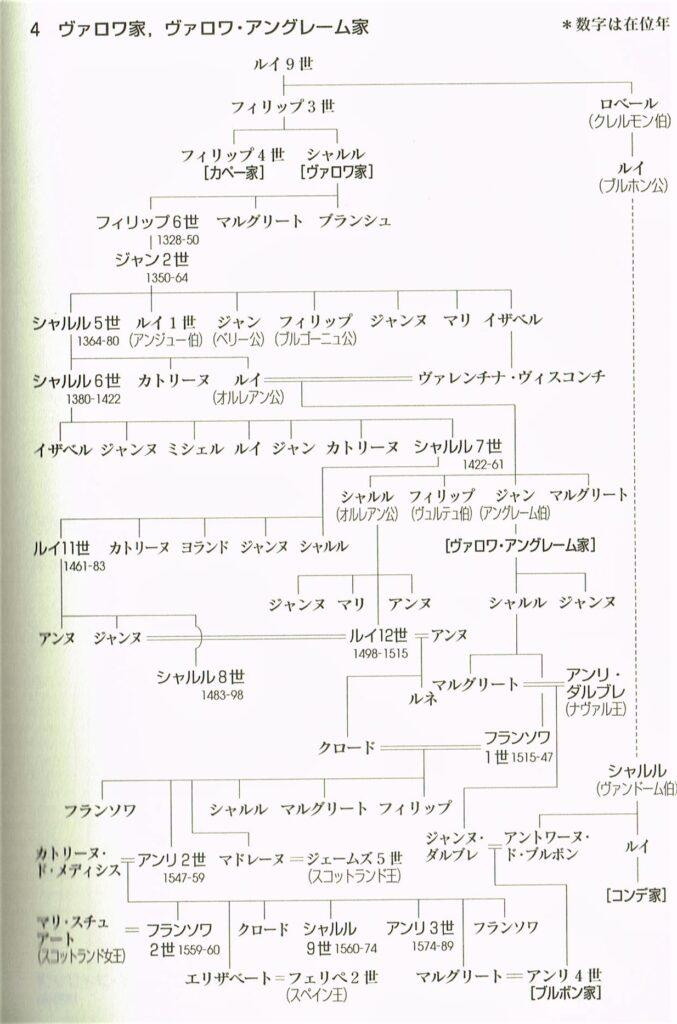 4 ヴァロワ家，ヴァロワ・アングレーム家
＊数字は在位年
ルイ9世
フィリップ3世
ロベール
(クレルモン伯)
フィリップ4世 シャルル
[カペー家] [ヴァロワ家]
ルイ
(ブルホン公)
フィリップ6世 マルグリート ブランシュ
1328-50
ジャン2世
1350-64
シャルル5世 ルイ1世 ジャン フィリップ ジャンヌ マリ イザベル
1364-80 (アンジュー伯) (ベリー公) (ブルゴーニュ公)
シャルル6世 カトリーヌ ルイ ヴァレンチナ・ヴィスコンチ
1380-1422 (オルレアン公)
イザベル ジャンヌ ミシェル ルイ ジャン カトリーヌ シャルル7世
1422-61
シャルル フィリップ ジャン マルグリート
(オルレアン公) (ヴュルテュ伯) (アングレーム伯)
ルイ11世 カトリーヌ ヨランド ジャンヌ シャルル [ヴァロワ・アングレーム家]
1461-83
ジャンヌ マリ アンヌ シャルル ジャンヌ
アンヌ ジャンヌ ルイ12世 アンヌ
1498-1515
シャルル8世
1483-98
ルネ マルグリート アンリ・
ダルブレ
(ナヴァル王)
クロード フランソワ
1世 1515-47
シャルル
(ヴァンドーム伯)
フランソワ シャルル マルグリート フィリップ
カトリーヌ・
ド・メディシス
アンリ2世 マドレーヌ ジェームズ5世
1547-59 (スコットランド王)
ジャンヌ・
ダルブレ
アントワーヌ・
ド・ブルボン
ルイ
[コンデ家]
マリ・スチュ
アート
(スコットランド女王)
フランソワ クロード シャルル アンリ3世 フランソワ
2世 1559-60 9世 1560-74 1574-89
エリザベート フェリペ2世 マルグリート アンリ4世
(スペイン王) [ブルボン家]